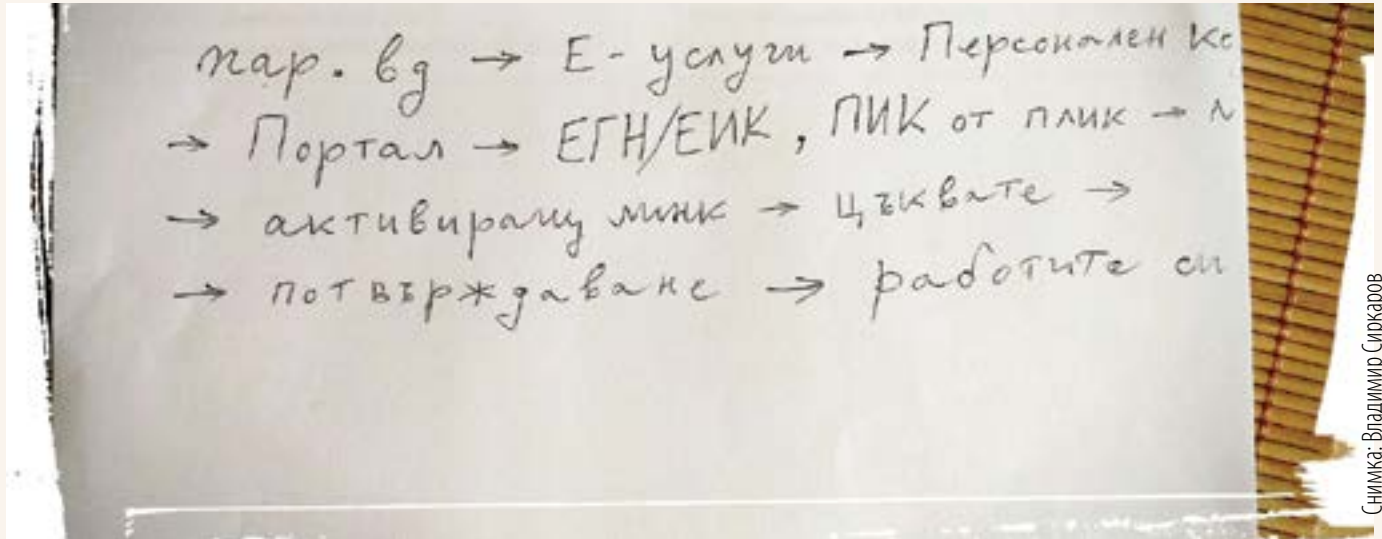 → Е-услуги → Персонален
→ Портал → ЕГН/ЕИК, ПИК от плик →
→ активиращ линк → цъквате →
→ потвърждаване → работите си
Снимка: Владимир Сиркаров